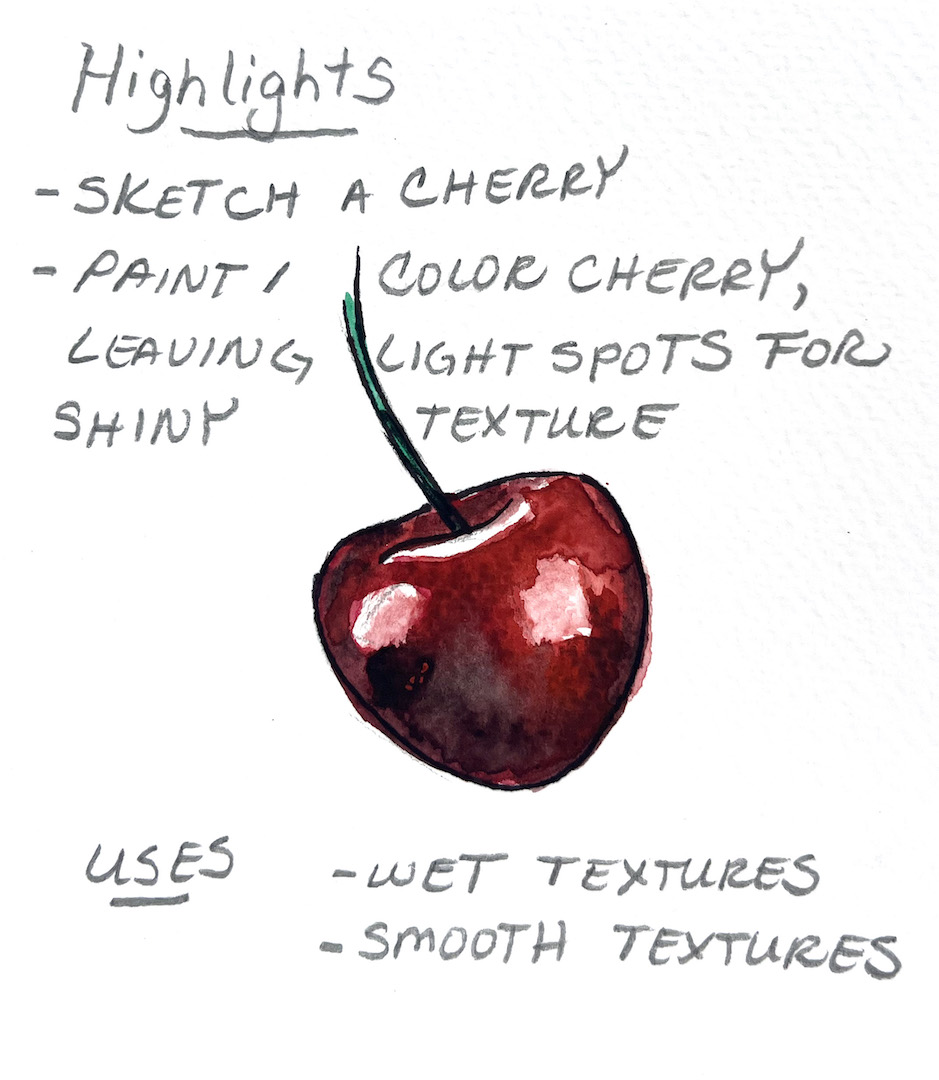 Highlights
- SKETCH A CHERRY
- PAINT / COLOR CHERRY,
LEAVING LIGHT SPOTS FOR
SHINY TEXTURE
USES
- WET TEXTURES
- SMOOTH TEXTURES